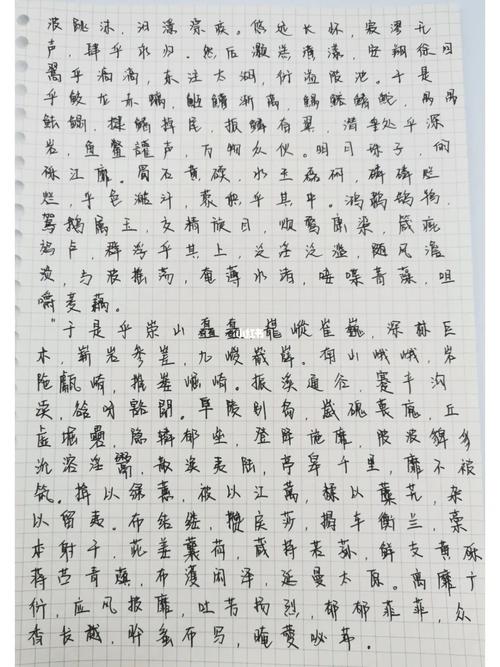 波跳沫，汩㴔漂疾。悠远长怀，寂漻无
声，肆乎永归。然后灏溔潢漾，安翔徐回
翯乎滈滈，东注太湖，衍溢陂池。于是
乎蛟龙赤螭，䱍䲛渐离，鰅鳙鳍鮀，禺禺
魼鳎，揵鳍掉尾，振鳞奋翼，潜处乎深
岩，鱼鳖讙声，万物众伙。明月珠子，的
砾江靡。蜀石黄碝，水玉磊砢，磷磷烂
烂，采色澔汗，藂积乎其中。鸿鹔鹄鸨，
鴐鹅属玉，交精旋目，烦鹜庸渠，箴疵
䴔卢，群浮乎其上，泛淫泛滥，随风澹
淡，与波摇荡，奄薄水渚，唼喋菁藻，咀
嚼菱藕。
“于是乎崇山矗矗，巃嵷崔巍，深林巨
木，崭岩参嵯，九嵕巀嶭。南山峨峨，岩
陁甗崎，摧崣崛崎。振溪通谷，蹇产沟
渎，谽呀豁閜。阜陵别岛，崴磈嵔廆，丘
虚堀礨，隐辚郁㠥，登降施靡，陂池貏豸
沇溶淫鬻，散涣夷陆，亭皋千里，靡不被
筑。揜以绿蕙，被以江蓠，糅以蘼芜，杂
以留夷。布结缕，攒戾莎，揭车衡兰，槀
本射干，茈姜蘘荷，葴持若荪，鲜支黄砾
蒋苎青薠，布濩闳泽，延曼太原。离靡广
衍，应风披靡，吐芳扬烈，郁郁菲菲，众
香发越，肸蠁布写，晻薆咇茀。